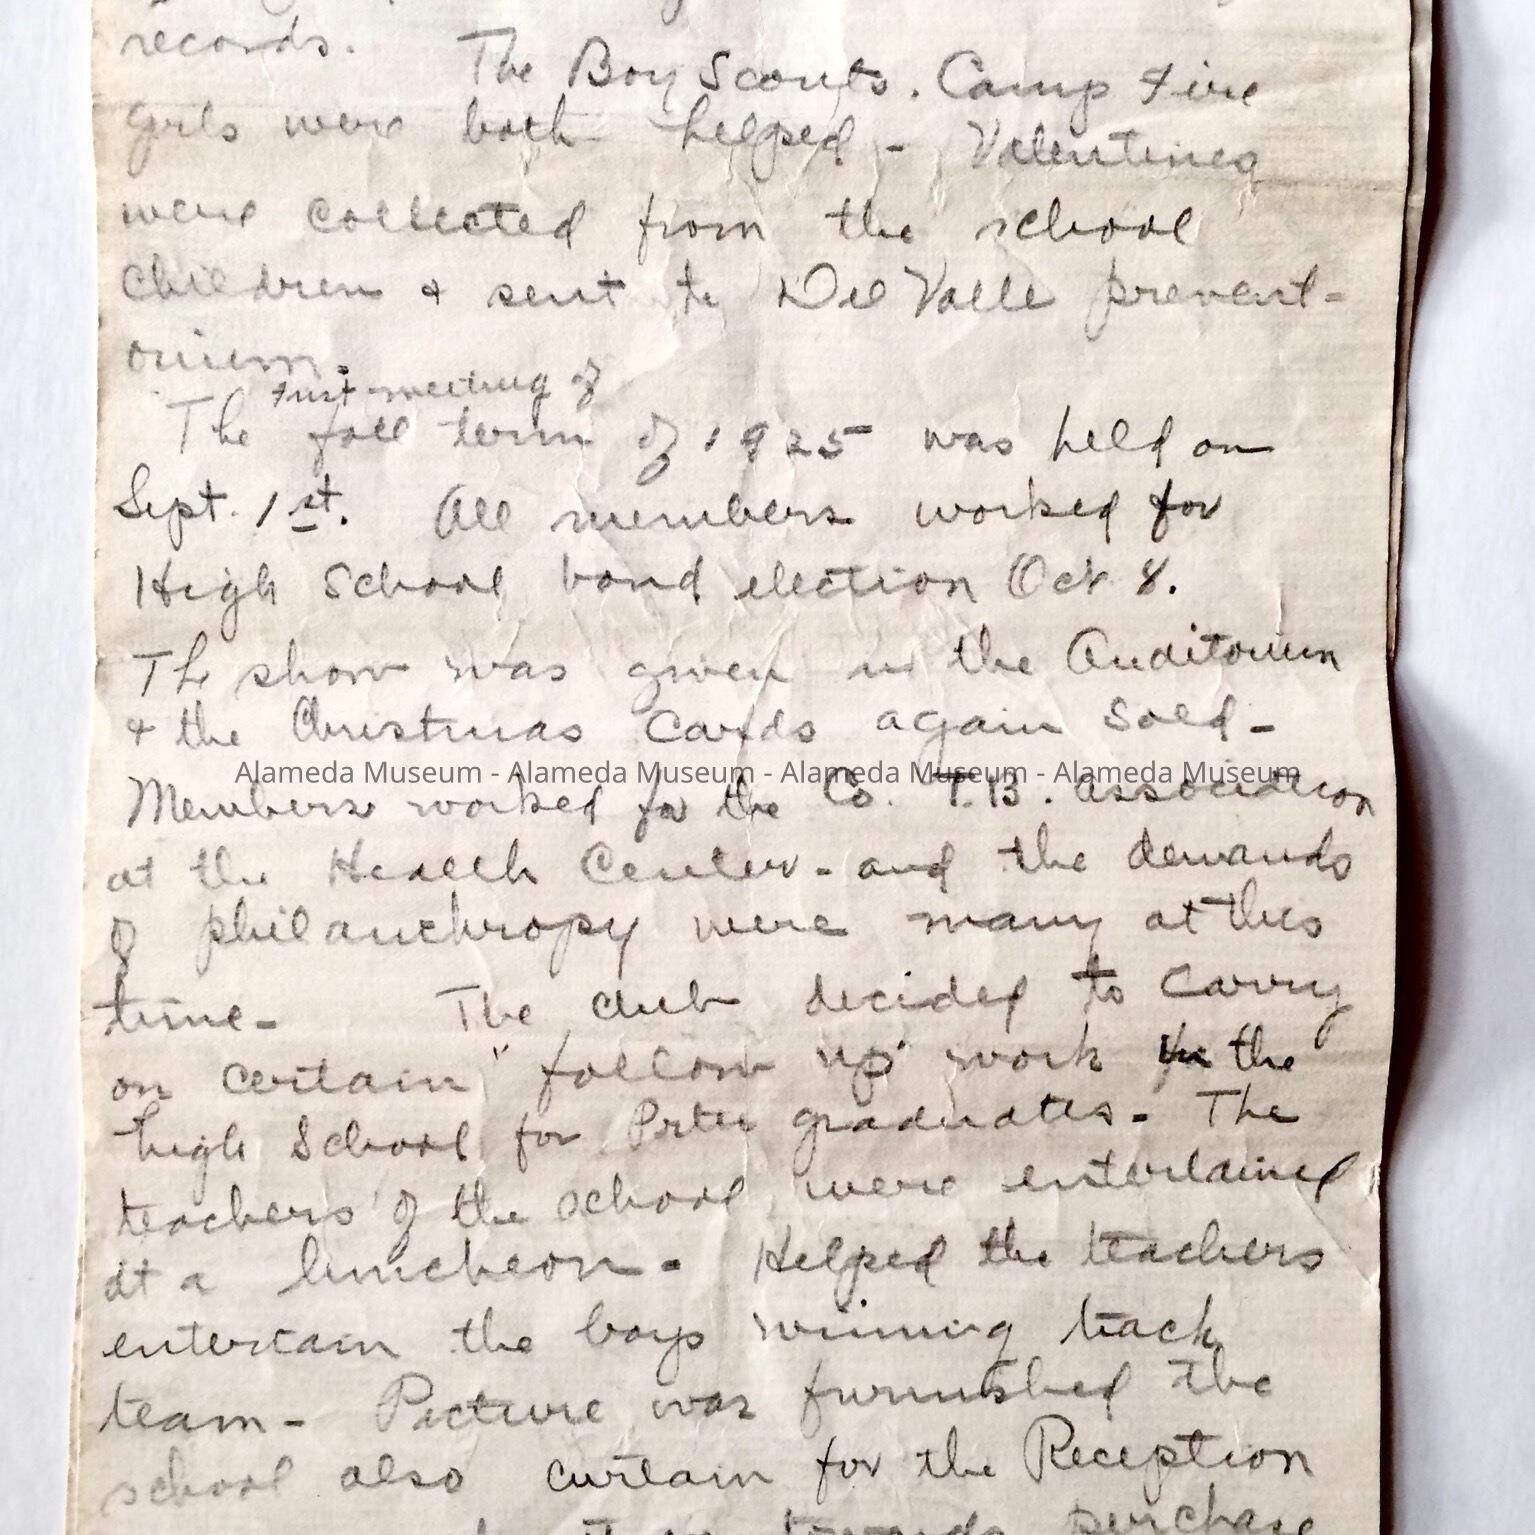 records. The Boy Scouts. Camp Fire
girls were both helped - Valentines
were collected from the school
children & sent to Del Valle prevent-
orium.
First meeting of
The fall term of 1925 was held on
Sept. 1st. All members worked for
High School bond election Oct 8.
Th show was given in the Auditorium
& the Christmas Cards again sold -
Alameda Museum - Alameda Museum - Alameda Museum - Alameda Museum
Members worked for the Co. T.B. Association
at the Health Center - and the demands
of philanthropy were many at this
time - The club decided to carry
on certain "follow up" work in the
high School for Porter graduates - The
teachers of the school were entertained
at a luncheon - Helped the teachers
entertain the boys winning track
team - Picture was furnished the
school also curtain for the Reception
towards purchase